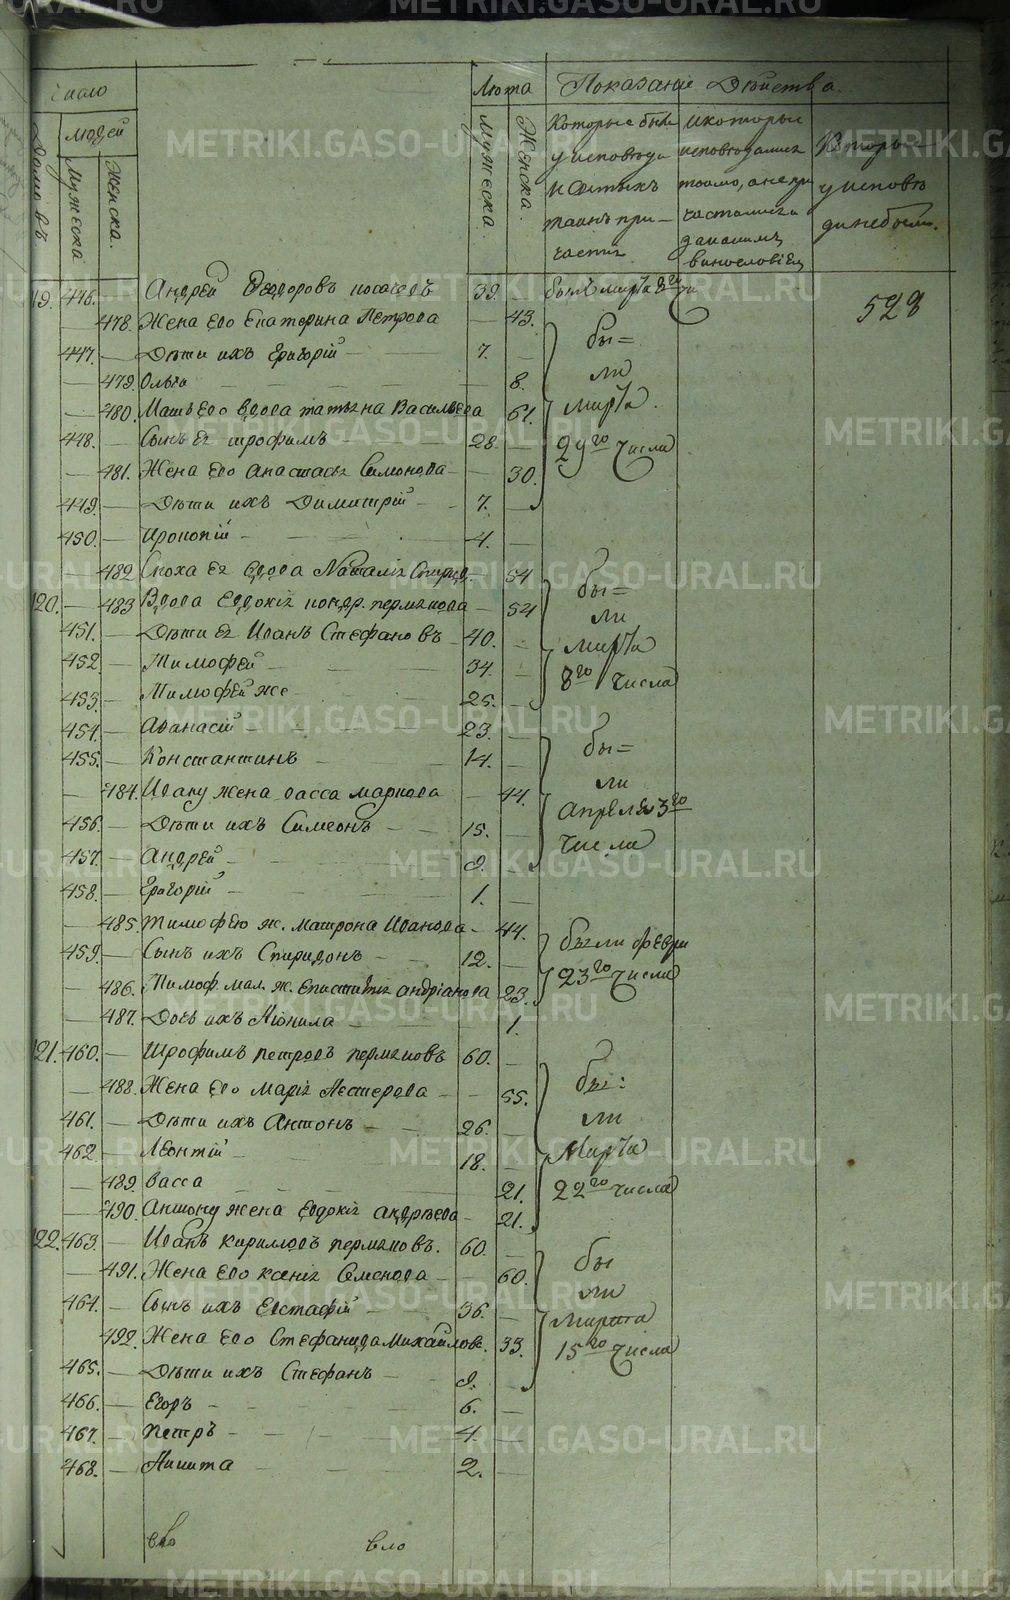 METRIKI.GASO-URAL.RU
Число
Людей
Домовъ
Мужеска
Женска.
Лѣта
Мужеска
Женска.
Показанiе Дѣйства.
Которые были
у исповѣди
и святыхъ
таинъ при-
частiя
и которые
исповѣдались
токмо, а не при
частились и
за какимъ
винословiем
Которые
у исповѣ
ди не были.
528
19. 446. — Андрей Ѳеодоровъ 39. — былъ марта 8го
— 478. Жена его Екатерина Петрова — 43.
447. — Дѣти ихъ Григорiй — 7. —
— 479. Ольга — 8.
— 480. Мать его вдова татьяна Васильева 61.
448. — Сынъ ея трофимъ — 28. —
— 481. Жена его анастасья Симонова — 30.
449. — Дѣти ихъ Димитрiй — 7. —
бы=
ли
марта
29го числа
450. — Прокопiй — 4. —
— 482 Сноха ея вдова Наталiя — 54
120. — 483 Вдова Евдокiя пермякова — 54
451. — Дѣти ея Иванъ Стефановъ — 40. —
452. — Тимофей — 34. —
453. — Тимофей же 25. —
бы=
ли
марта
8го числа
454. — Афанасiй — 23. —
455. — Константинъ — 14. —
— 484. Ивану жена васса маркова — 44.
456. — Дѣти ихъ Симеонъ — 15. —
457. — Андрей — 9. —
бы=
ли
Апреля 3го
числа
458. — Григорiй — 1. —
— 485. Тимофею ж. Матрона Иванова — 44.
459. — Сынъ ихъ Спиридонъ — 12. —
— 486. Тимоф. мал. ж. андрiанова 23.
были февра
23го числа
— 487. Дочь ихъ Нионила — 1.
121. 460. — Трофимъ петровъ пермяковъ 60. —
— 488. Жена его Марiя Нестерова — 55.
461. — Дѣти ихъ Антонъ — 26. —
462 — Леонтiй — 18. —
— 489. Васса — 21.
— 490. Антону жена Евдокiя андреева — 21.
бы:
ли
Марта
22го числа
122. 463. — Иванъ кирилловъ пермяковъ. 60. —
— 491. Жена его ксенiя Семенова — 60.
464. — Сынъ ихъ Евстафiй — 36. —
— 492. Жена его Стефанида Михайлова. 33.
465. — Дѣти ихъ Стефанъ — 9. —
бы
ли
марта
15го числа
466. — Егоръ — 6. —
467. — Петръ — 4. —
468. — Никита — 2. —